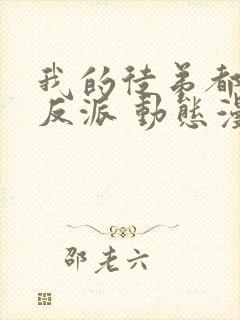 我的徒弟都
反派 動態漫
邵老六